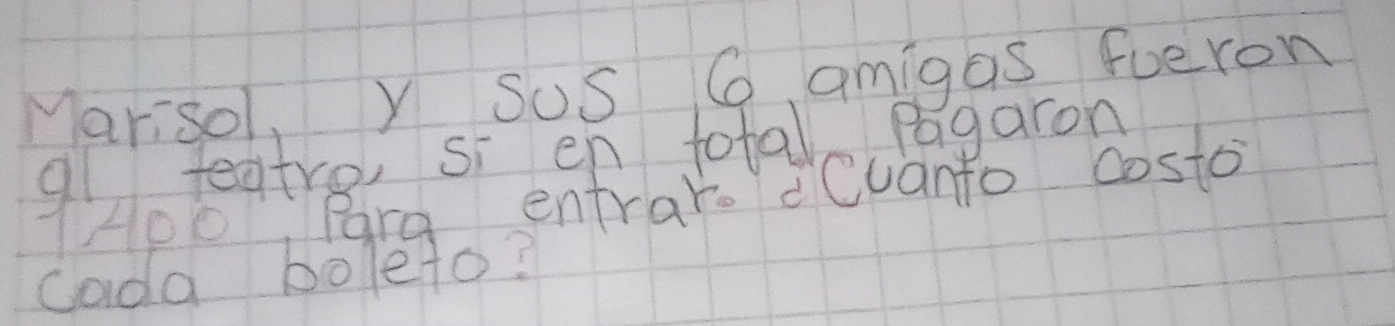 Marisol, y sus 6 amigas fueron
al teatro, si en total Pagaron
1400 Para entrar. ¿Cuanto costó
cada boleto?